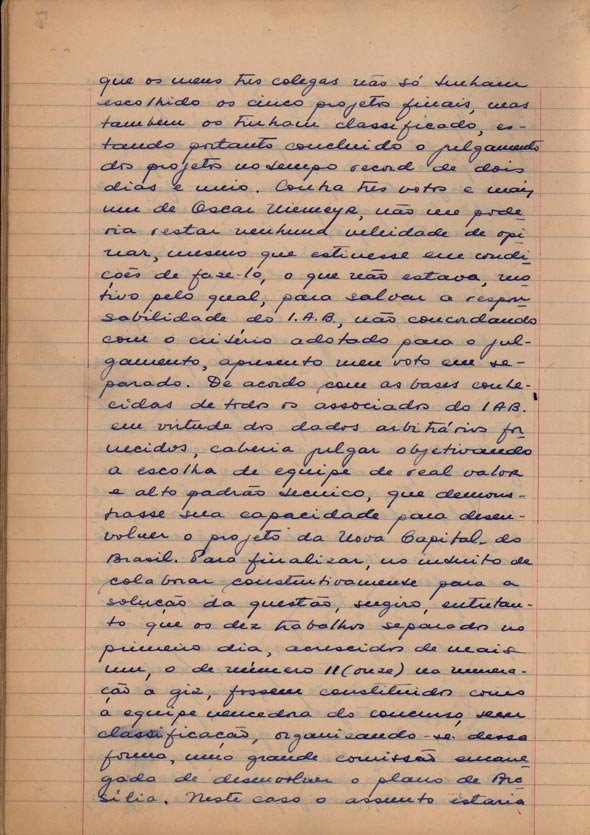 que os meus três colegas não só tinham
escolhido os cinco projetos finais, mas
tambem os tinham classificado, es-
tando portanto concluido o julgamento
dos projetos no tempo record de dois
dias e meio. Contra três votos e mais
um de Oscar Niemeyer, não me pode-
ria restar nenhuma veleidade de opi-
nar, mesmo que estivesse em condi-
ções de faze-lo, o que não estava, mo-
tivo pelo qual, para salvar a respon-
sabilidade do I.A.B., não concordando
com o critério adotado para o jul-
gamento, apresento meu voto em se-
parado. De acordo com as bases conhe-
cidas de todos os associados do IAB.
em virtude dos dados arbitrários for-
necidos, caberia julgar objetivando
a escolha de equipe de real valor
e alto padrão tecnico, que demons-
trasse sua capacidade para desen-
volver o projeto da Nova Capital do
Brasil. Para finalizar, no intuito de
colaborar construtivamente para a
solução da questão, sugiro, entretan-
to que os dez trabalhos separados no
primeiro dia, acrescidos de mais
um, o de número 11 (onze) na numera-
ção a giz, fossem constituidos como
a equipe vencedora do concurso, sem
classificação, organizando-se dessa
forma, uma grande comissão encarre-
gada de desenvolver o plano de Bra-
silia. Neste caso o assunto estaria